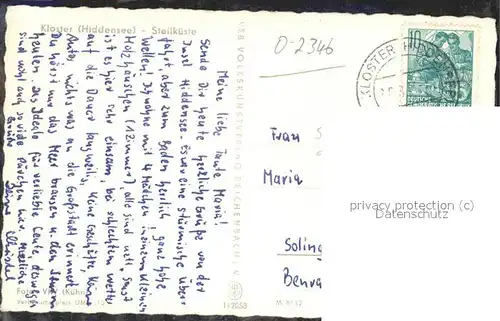 Kloster (Hiddensee) - Steilküste
Meine liebe Tante Maria!
Sende Dir heute herzliche Grüße von der
Insel Hiddensee. Es war eine stürmische Über
fahrt, aber zum Baden herrlich, ganz hohe
Wellen! Ich wohne mit 4 Mädchen in einem kleinen
Holzhäuschen (1 Zimmer), alle sind nett. Sonst
ist es hier sehr einsam, bei schlechtem Wetter
auf die Dauer langweilig, keine Geschäfte, keine
Autos, nichts was an die Großstadt erinnert.
Du hörst nur das Meer brausen u. den Sturm
heulen. Das Ideale für verliebte Leute, deswegen
sind wohl auch so viele Pärchen hier. Herzliche
Grüße Deine
VEB VOLKSKUNSTVERLAG REICHENBACH
Foto: VKV (Kühn)
O-2346
KLOSTER HIDDENSEE
10
DEUTSCHE
Frau S
Maria
privacy protection (c)
Datenschutz
Solin
Benra